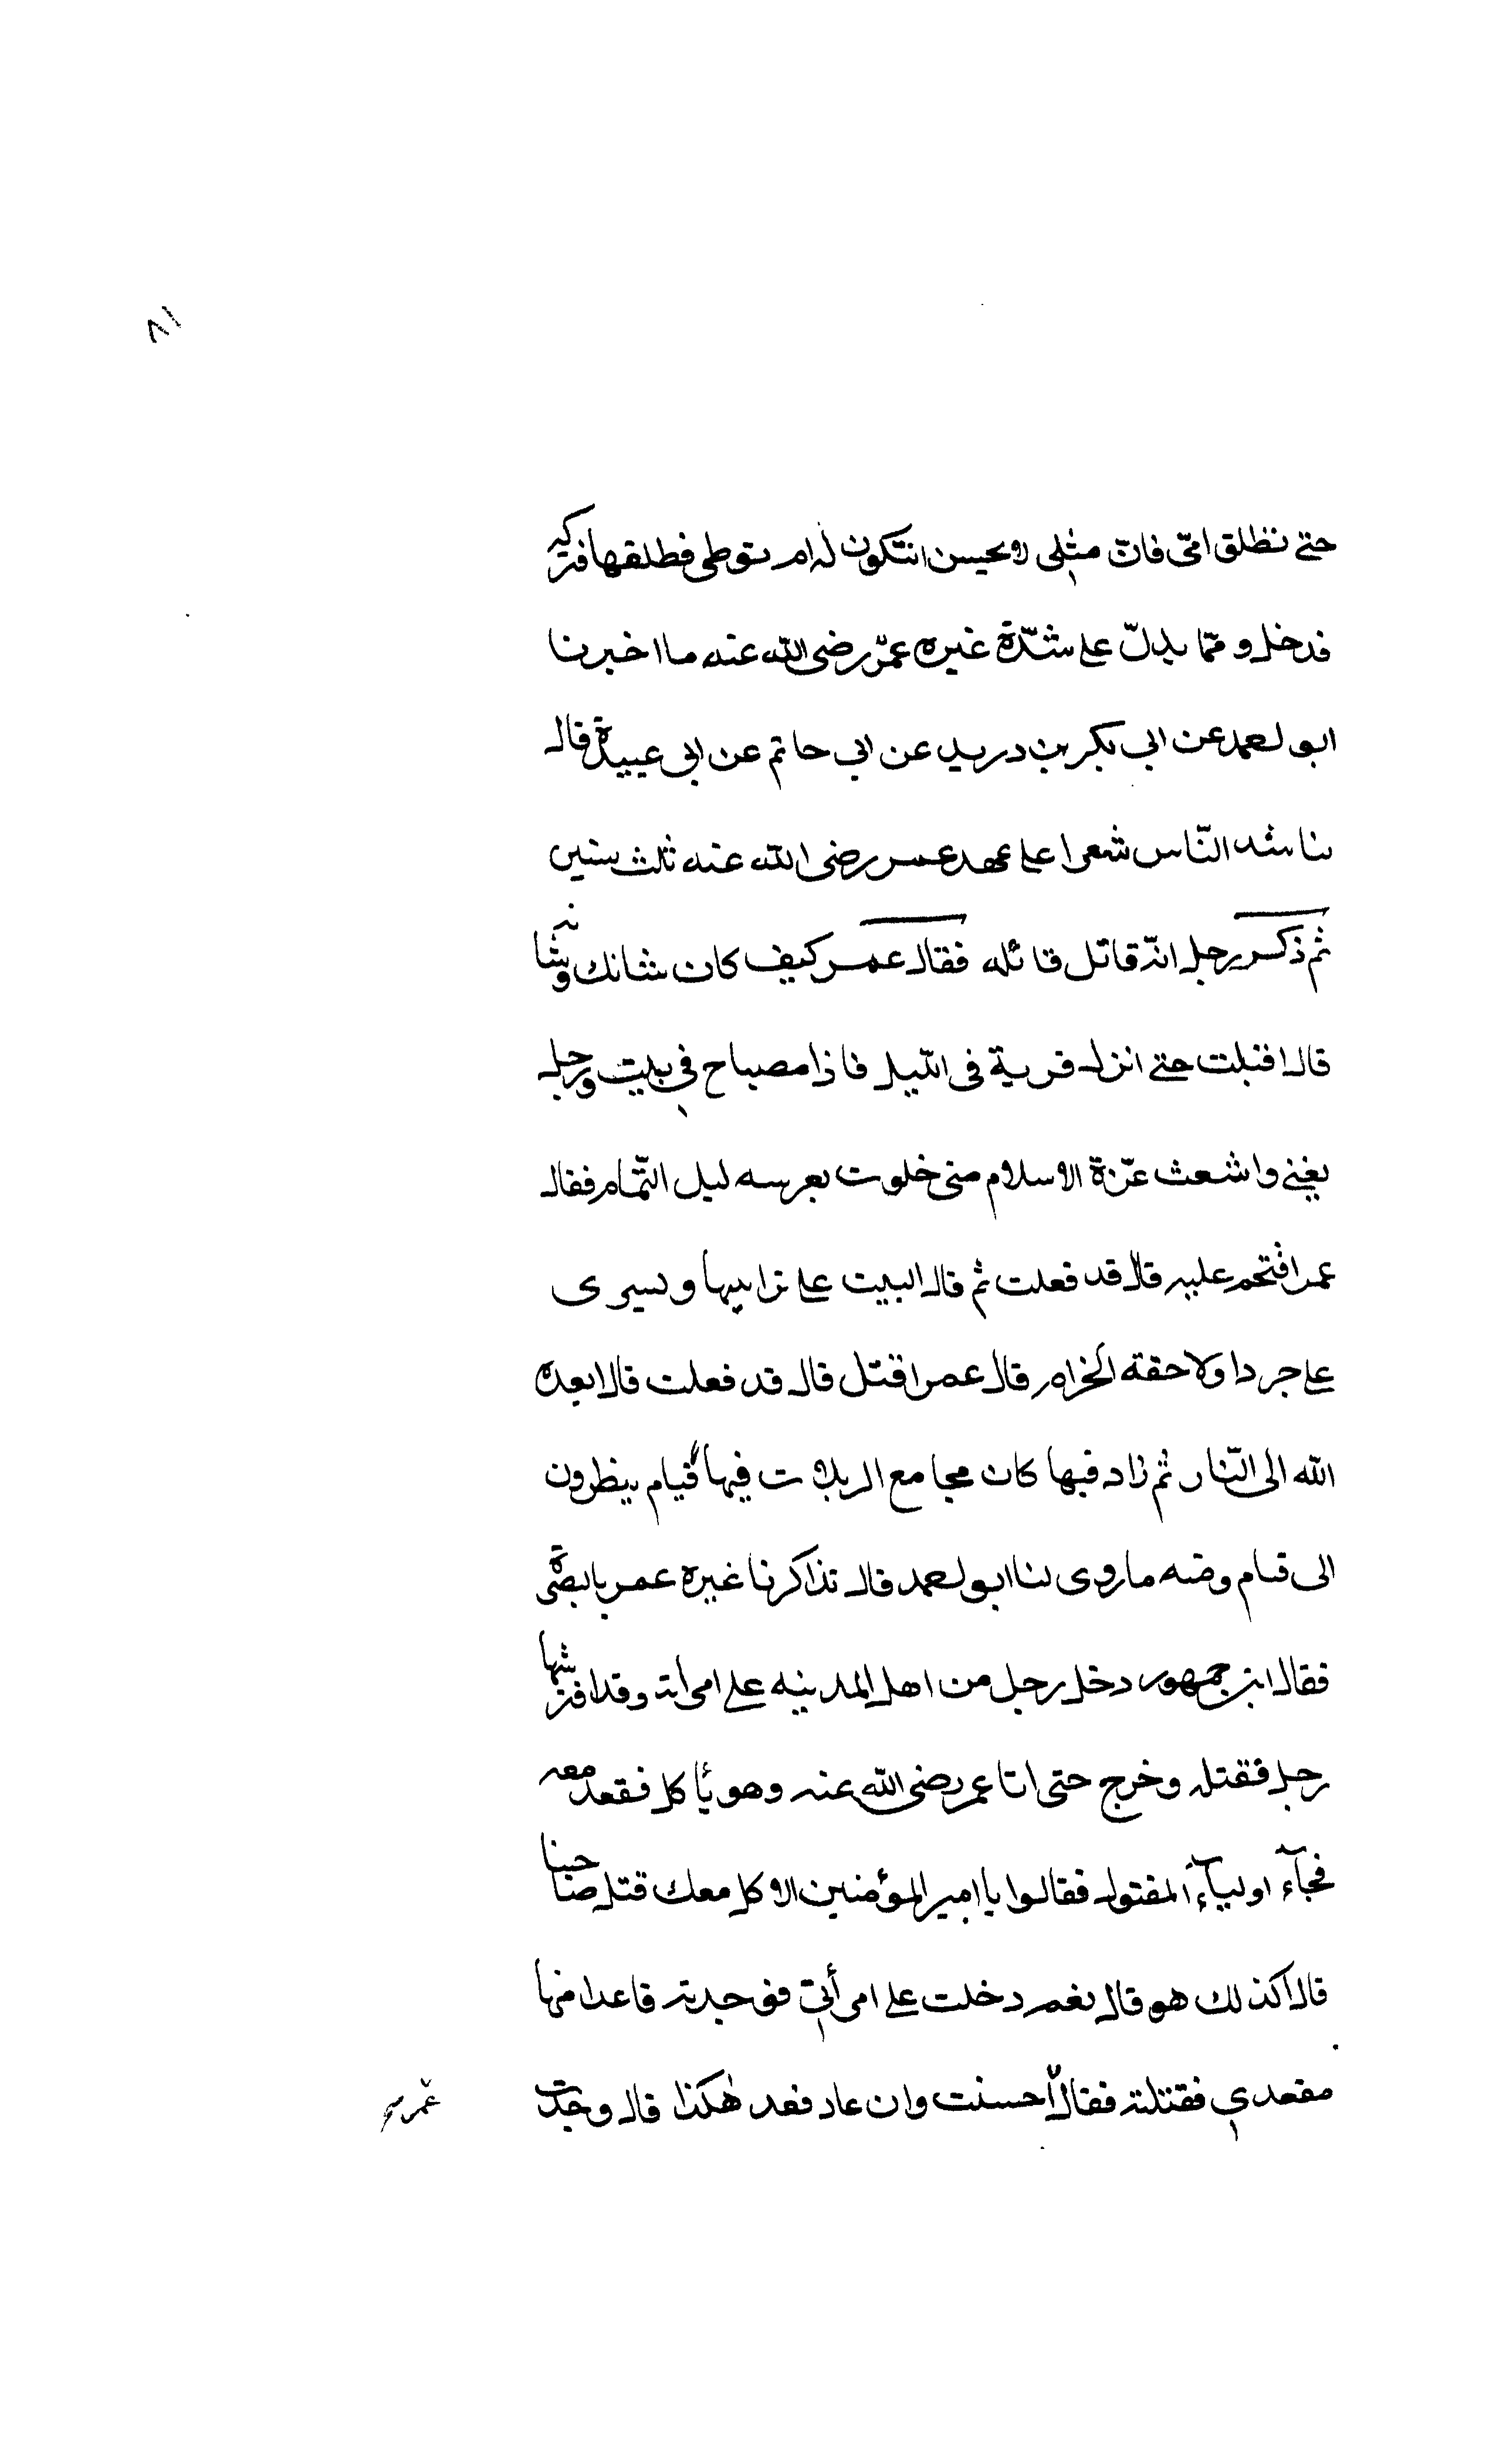 ٨١
حتى تطلق امّى فانّ مثلى لا يحسن ان تكون له ام توطى فطلقها فتركه
فدخل و ممّا يدلّ على شدّة غيره عمر رضى الله عنه ما اخبرنا
ابو لحمد عن ابى بكر بن دريد عن ابى حاتم عن ابى عبيدة قال
تناشد النّاس شعرا على عهد عمر رضى الله عنه ثلث سنين
ثم ذكر رجل انّه قاتل قائله فقال عمر كيف كان شانك وشانه
قال اقبلت حتى انزل قرية فى اللّيل فاذا مصباح فى بيت ورجل
يغنى واشعث غرّة الاسلام منى خلوت بعرسه ليل التّمام فقال
عمر افتحم عليه قال قد فعلت ثم قال ابيت على ترابيها ويسرى
على جردا ولاحقة الخزام قال عمر اقتل قال قد فعلت قال ابعده
الله الى النّار ثم زاد فيها كان مجامع الربلات فيها قيام ينظرون
الى قيام ومنه ما روى لنا ابو لحمد قال تذاكرنا غيره عمر بالبصرة
فقال ابن جمهور دخل رجل من اهل المدينه على امراته وقد افترشها
رجل فقتله وخرج حتى اتا عمر رضى الله عنه وهو يأكل فقعد معه
فجآء اوليآء المقتول فقالوا يا امير المؤمنين الاكل معك قتل صاحبنا
قال اكذلك هو قال نعم دخلت على امرأتى فوجدته قاعدا منها
مقعدى فقتلته فقال احسنت وان عاد فعد هكذا قال وجدت
عمر